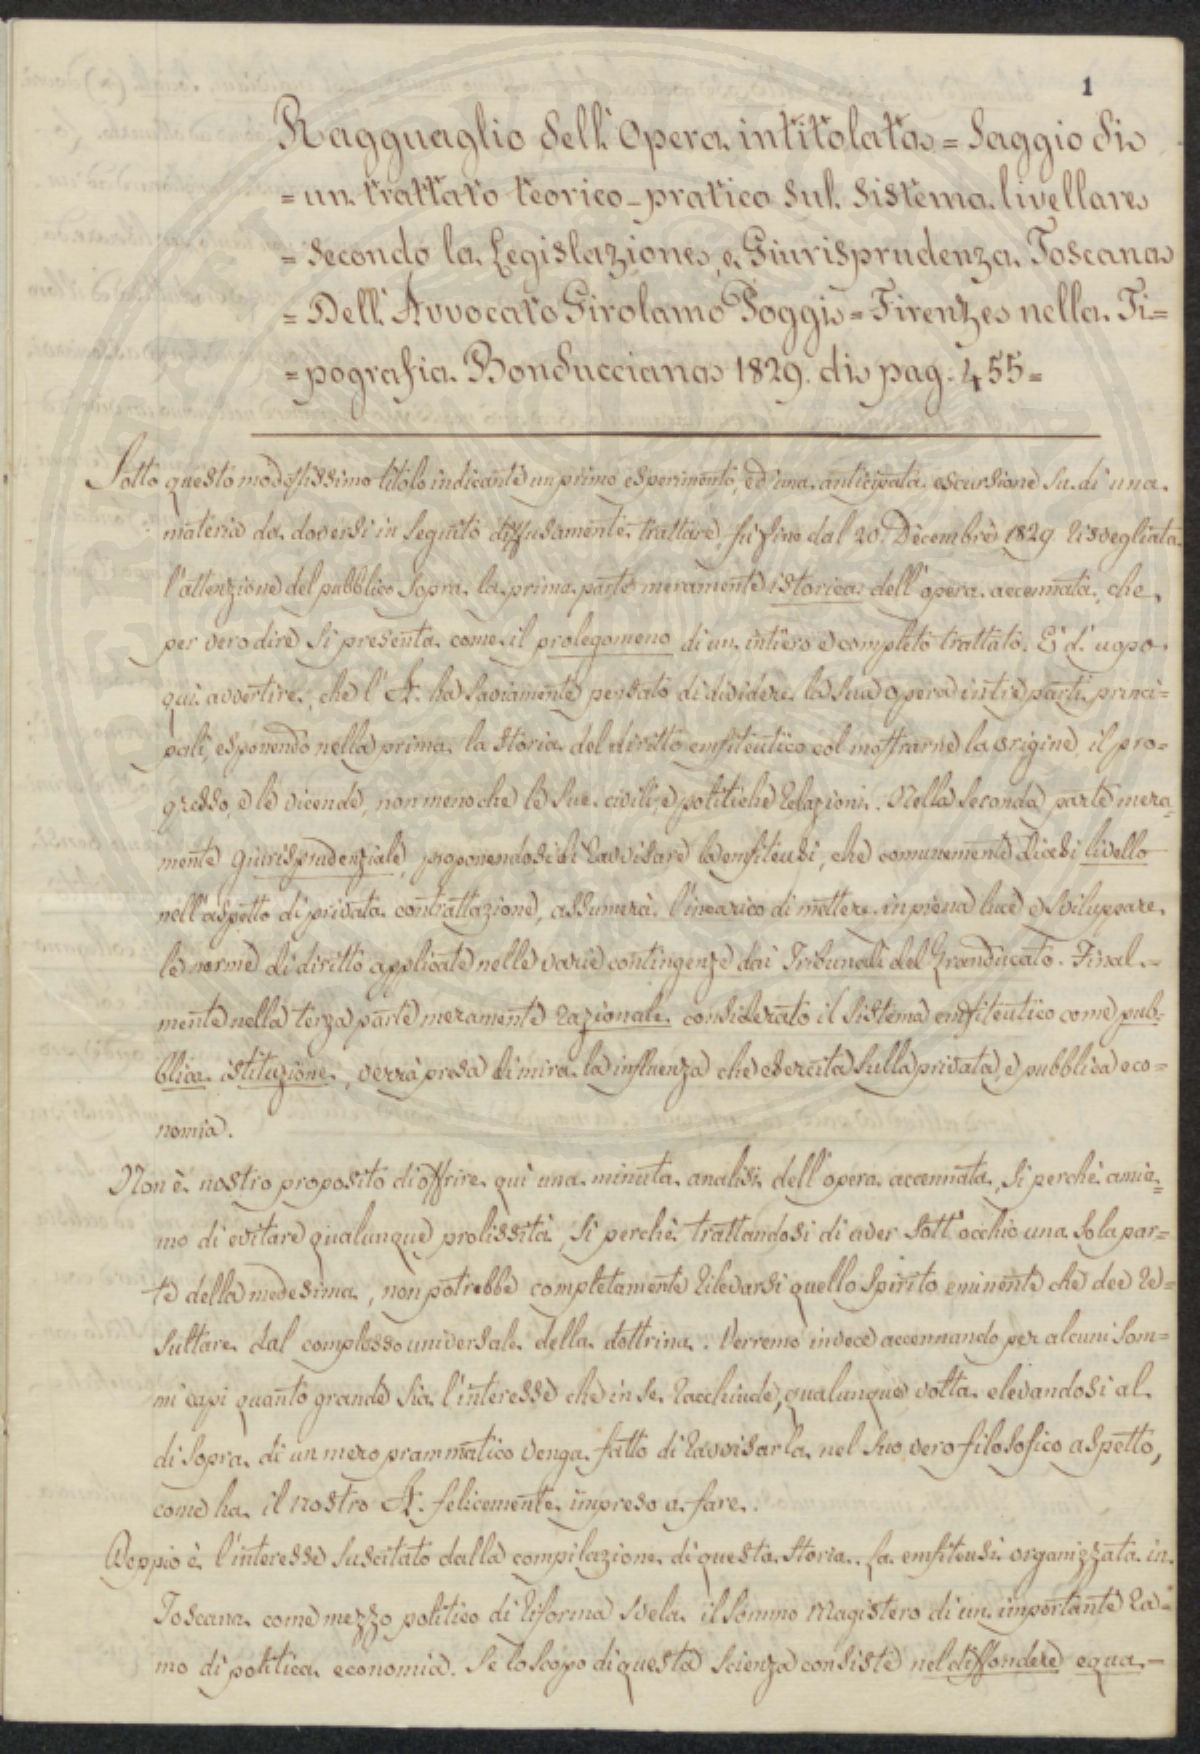 1
Ragguaglio dell'Opera intitolata = Saggio di
= un trattato teorico-pratico sul sistema livellare
= secondo la Legislazione, e Giurisprudenza Toscana
= Dell'Avvocato Girolamo Poggi = Firenze nella Ti=
= pografia Bonducciana 1829. di pag. 455 =
Sotto questo modestissimo titolo indicante un primo esperimento, ed una anticipata escursione su di una
materia da doversi in seguito diffusamente trattare, fu fino dal 20. Decembre 1829 risvegliata
l'attenzione del pubblico sopra la prima parte meramente istorica dell'opera accennata, che
per vero dire si presenta come il prolegomeno di un intiero e completo trattato. E' d'uopo
qui avvertire, che l'A. ha saviamente pensato di dividere la sua opera in tre parti princi=
pali, esponendo nella prima la storia del diritto enfiteutico col mostrarne la origine, il pro=
gresso, e le vicende, non meno che le sue civili, e politiche relazioni. Nella seconda parte mera=
mente giurisprudenziale, proponendosi di ravvisare la enfiteusi, che comunemente dicesi livello
nell'aspetto di privata contrattazione, assumerà l'incarico di mettere in piena luce e sviluppare
le norme di diritto applicate nelle varie contingenze dai Tribunali del Granducato. Final=
mente nella terza parte meramente razionale considerato il sistema enfiteutico come pub=
blica istituzione, verrà presa di mira la influenza che esercita sulla privata, e pubblica eco=
nomia.
Non è nostro proposito di offrire qui una minuta analisi dell'opera accennata, si perchè amia=
mo di evitare qualunque prolissità, si perchè trattandosi di aver sott'occhio una sola par=
te della medesima, non potrebbe completamente rilevarsi quello spirito eminente che dee re=
sultare dal complesso universale della dottrina. Verremo invece accennando per alcuni som=
mi capi quanto grande sia l'interesse che in se racchiude, qualunque volta elevandosi al
di sopra di un mero prammatico venga fatto di ravvisarla nel suo vero filosofico aspetto,
come ha il nostro A. felicemente impreso a fare.
Doppio è l'interesse suscitato dalla compilazione di questa storia. La enfiteusi organizzata in
Toscana come mezzo politico di riforma svela il sommo magistero di un importante ra=
mo di politica economia. Se lo scopo di questa scienza consiste nel diffondere equa-